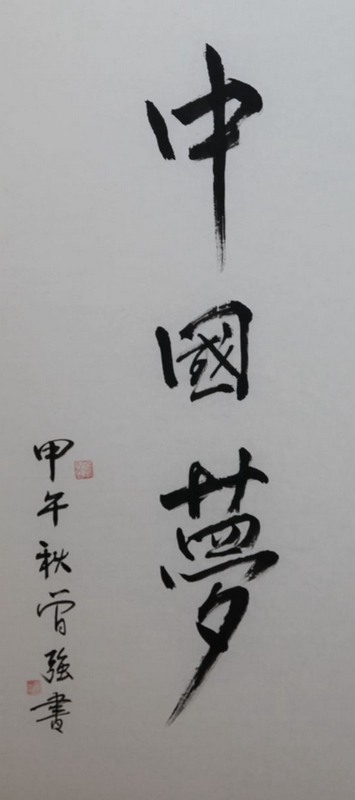 中國夢
甲午秋曾強書